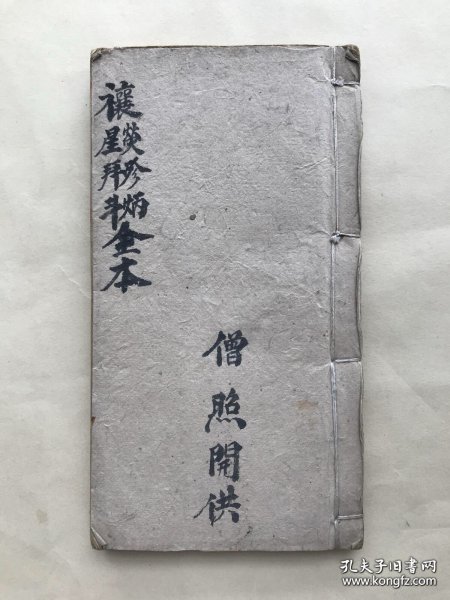 僧照開供
禳
珍炳
星拜斗
全本
孔夫子旧书网
www.kongfz.com